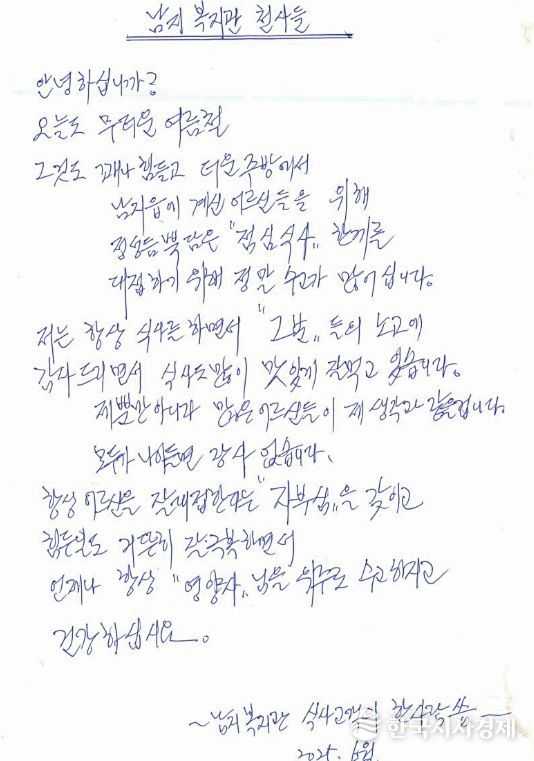 남지 복지관 천사들
안녕하십니까?
오늘도 무더운 여름철
그것도 꽤나 힘들고 더운 주방에서
남지읍에 계신 어르신들을 위해
정성듬뿍 담은 "점심식사" 한끼를
대접하기 위해 정말 수고가 많어십니다.
저는 항상 식사를 하면서 "그분"들의 노고에
감사 드리면서 식사도 많이 맛있게 잘먹고 있습니다.
제뿐만아니라 많은 어르신들이 제 생각과 같을겁니다.
모두가 나이들면 장사 없습니다.
항상 어르신을 잘대접한다는 "자부심"을 갖이고
힘든일도 거뜬히 잘극복하면서
언제나 항상 "영양사"님을 위주로 수고하시고
건강하십시요.
~남지복지관 식사고객이 씀~
2025. 6월
한국시사경제